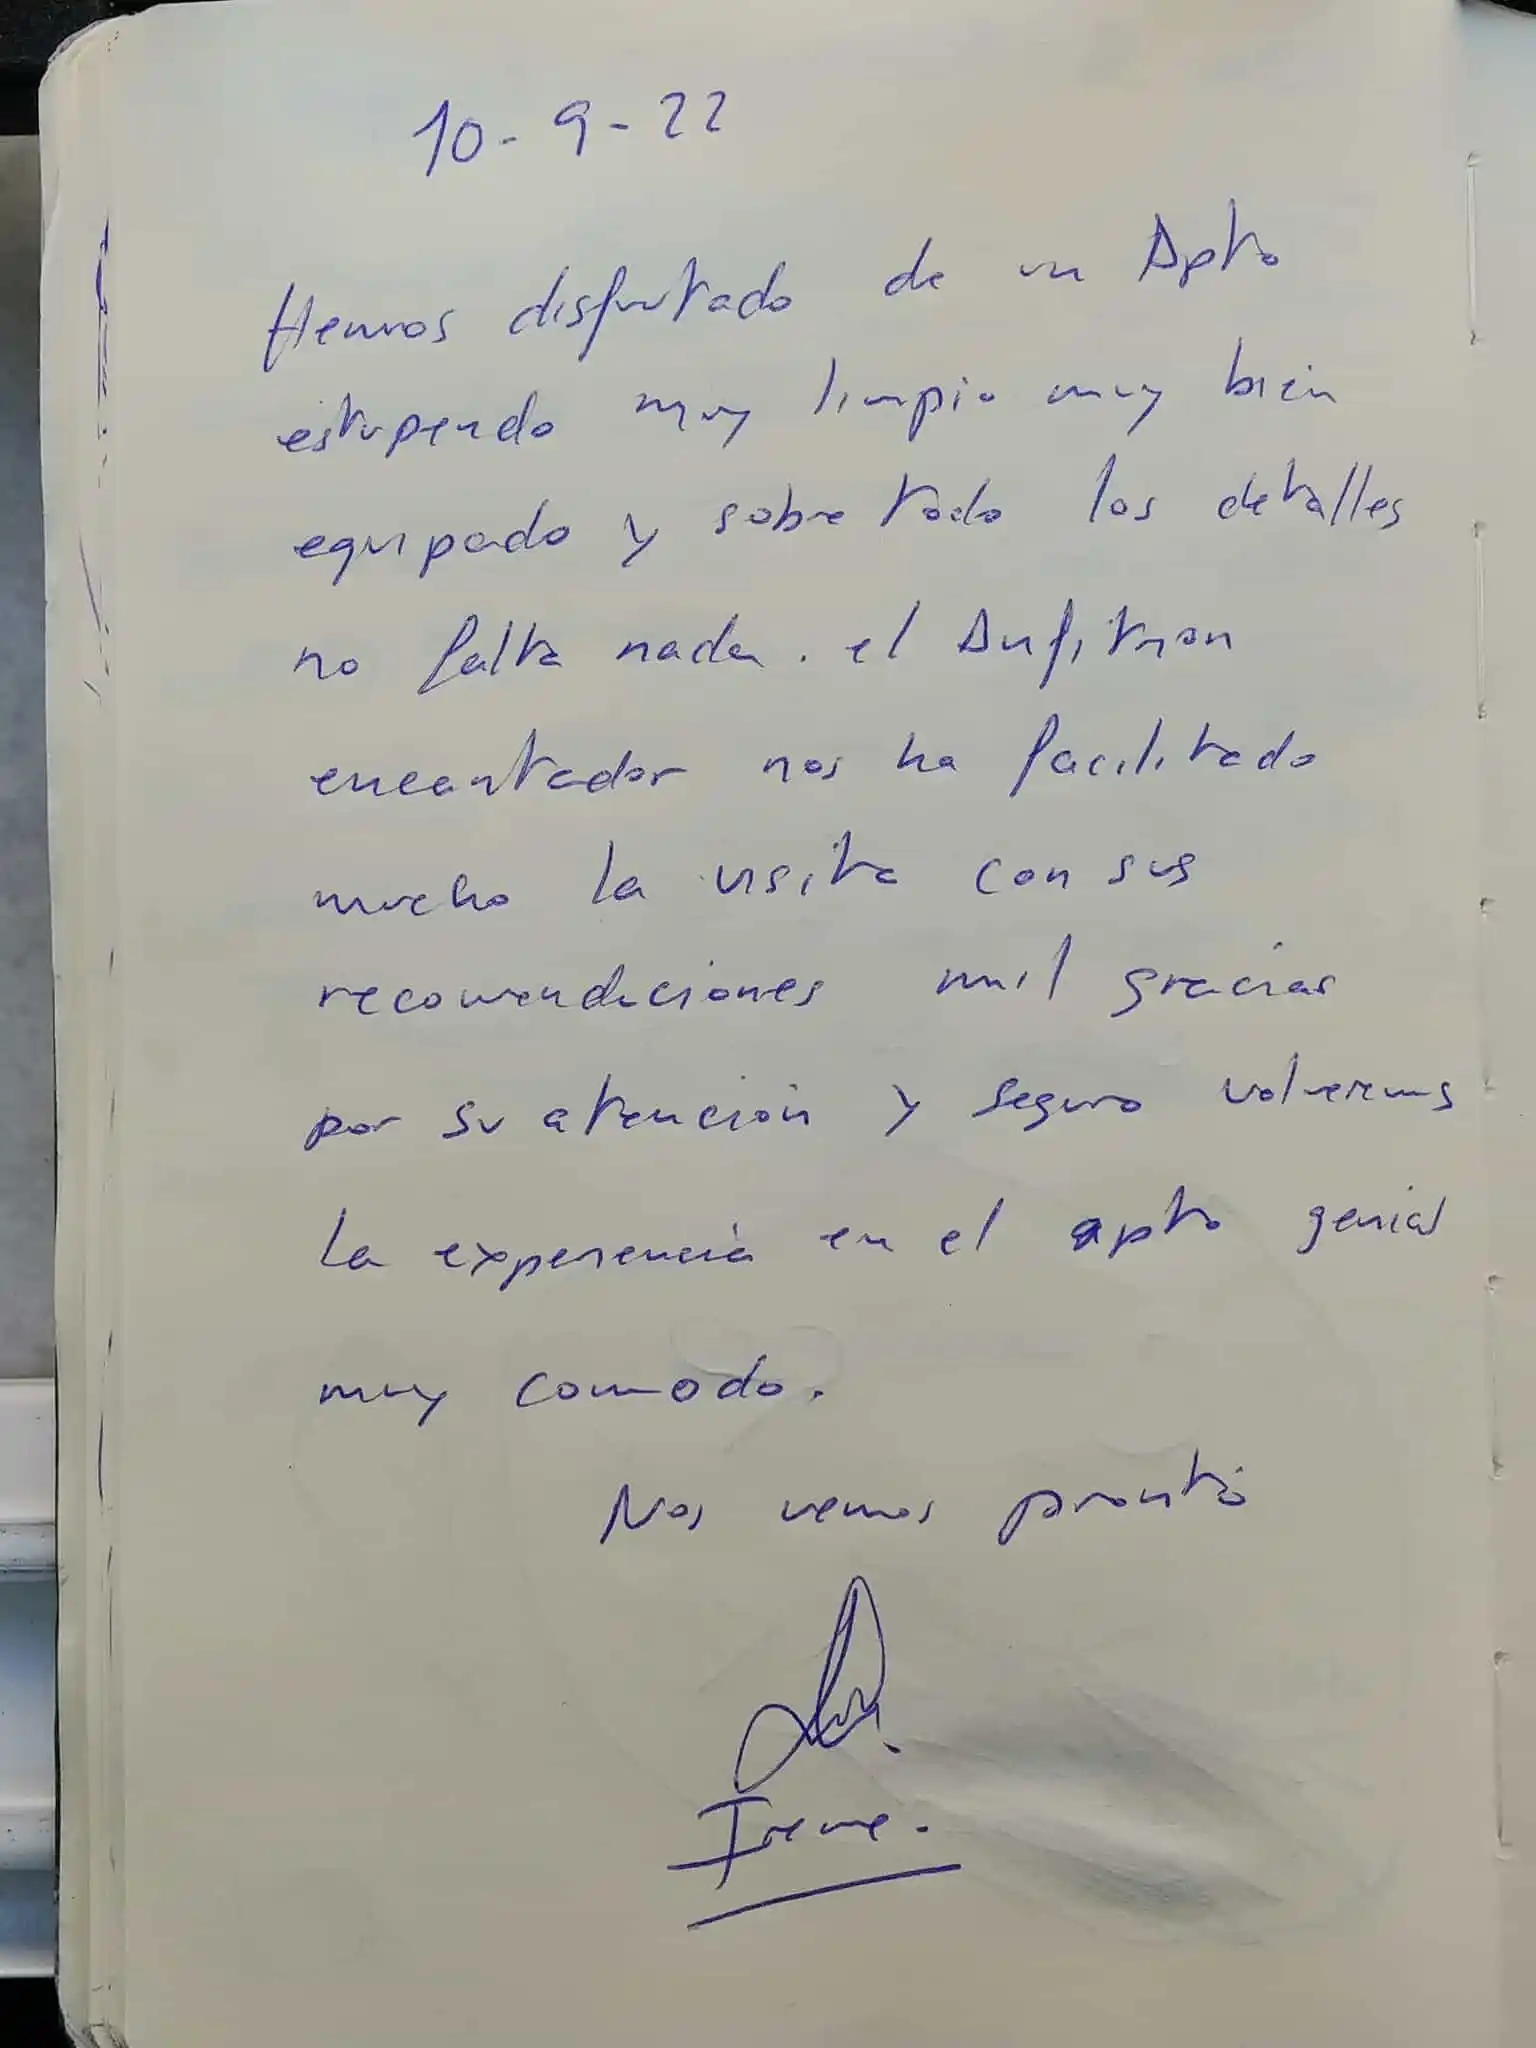 10-9-22
Hemos disfrutado de un Apto
estupendo muy limpio muy bien
equipado y sobre todo los detalles
no falta nada. el Anfitrion
encantador nos ha facilitado
mucho la visita con sus
recomendaciones mil gracias
por su atención y seguro volveremos
la experiencia en el apto genial
muy comodo.
Nos vemos pronto
Irene.